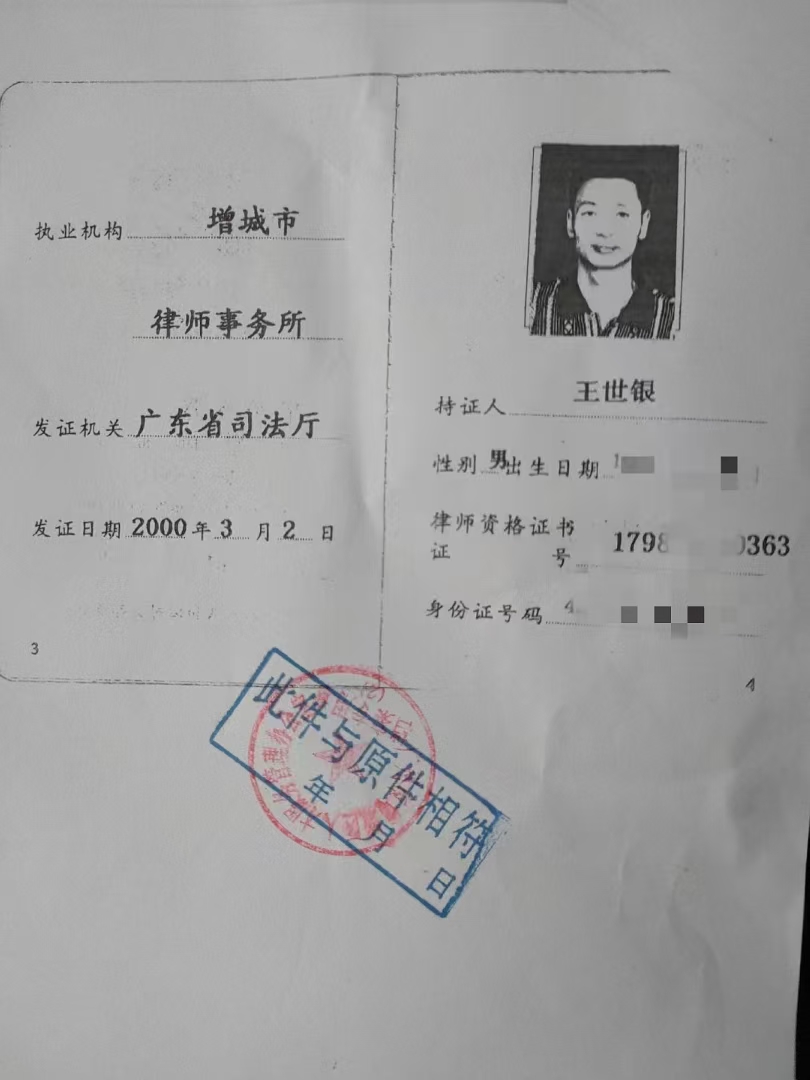 执业机构 增城市
律师事务所
发证机关 广东省司法厅
发证日期 2000 年 3 月 2 日
3
持证人 王世银
性别 男 出生日期 1
律师资格证书
证 号 1798 0363
身份证号码 4
4
此件与原件相符
年 月 日